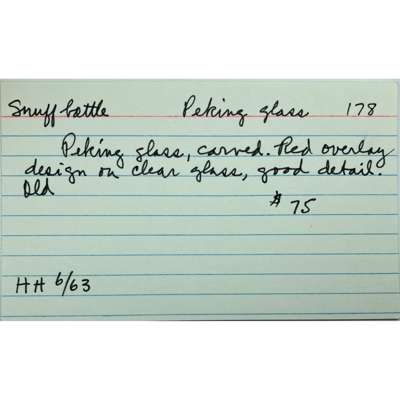 Snuff bottle Peking glass 178
Peking glass, carved. Red overlay
design on clear glass, good detail.
Old
$75
HH 6/63